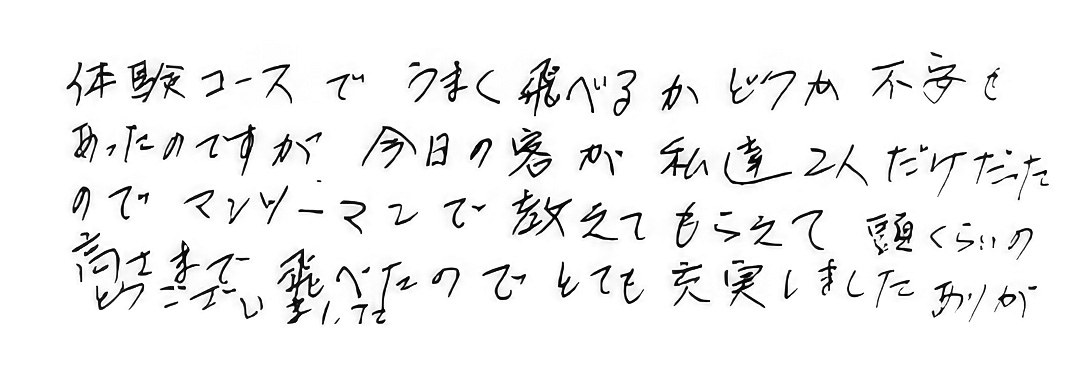 体験コースで うまく飛べるか どうか 不安も
あったのですが 今日の客が 私達2人だけだった
のでマンツーマンで教えてもらえて 頭くらいの
高さまで 飛べたのでとても充実しました ありが
とうございましした